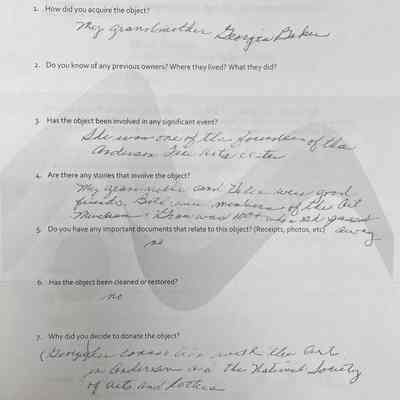 1. How did you acquire the object?
My grandmother Georgia Baker
2. Do you know of any previous owners? Where they lived? What they did?
3. Has the object been involved in any significant event?
She was one of the founders of the
Anderson Fine Arts Center
4. Are there any stories that involve the object?
My grandmother and were good
friends. Both were members of the Art
Museum. was 100+ when she passed
away
5. Do you have any important documents that relate to this object? (Receipts, photos, etc)
no
6. Has the object been cleaned or restored?
no
7. Why did you decide to donate the object?
with the Art
in Anderson and the National Society
of Arts and